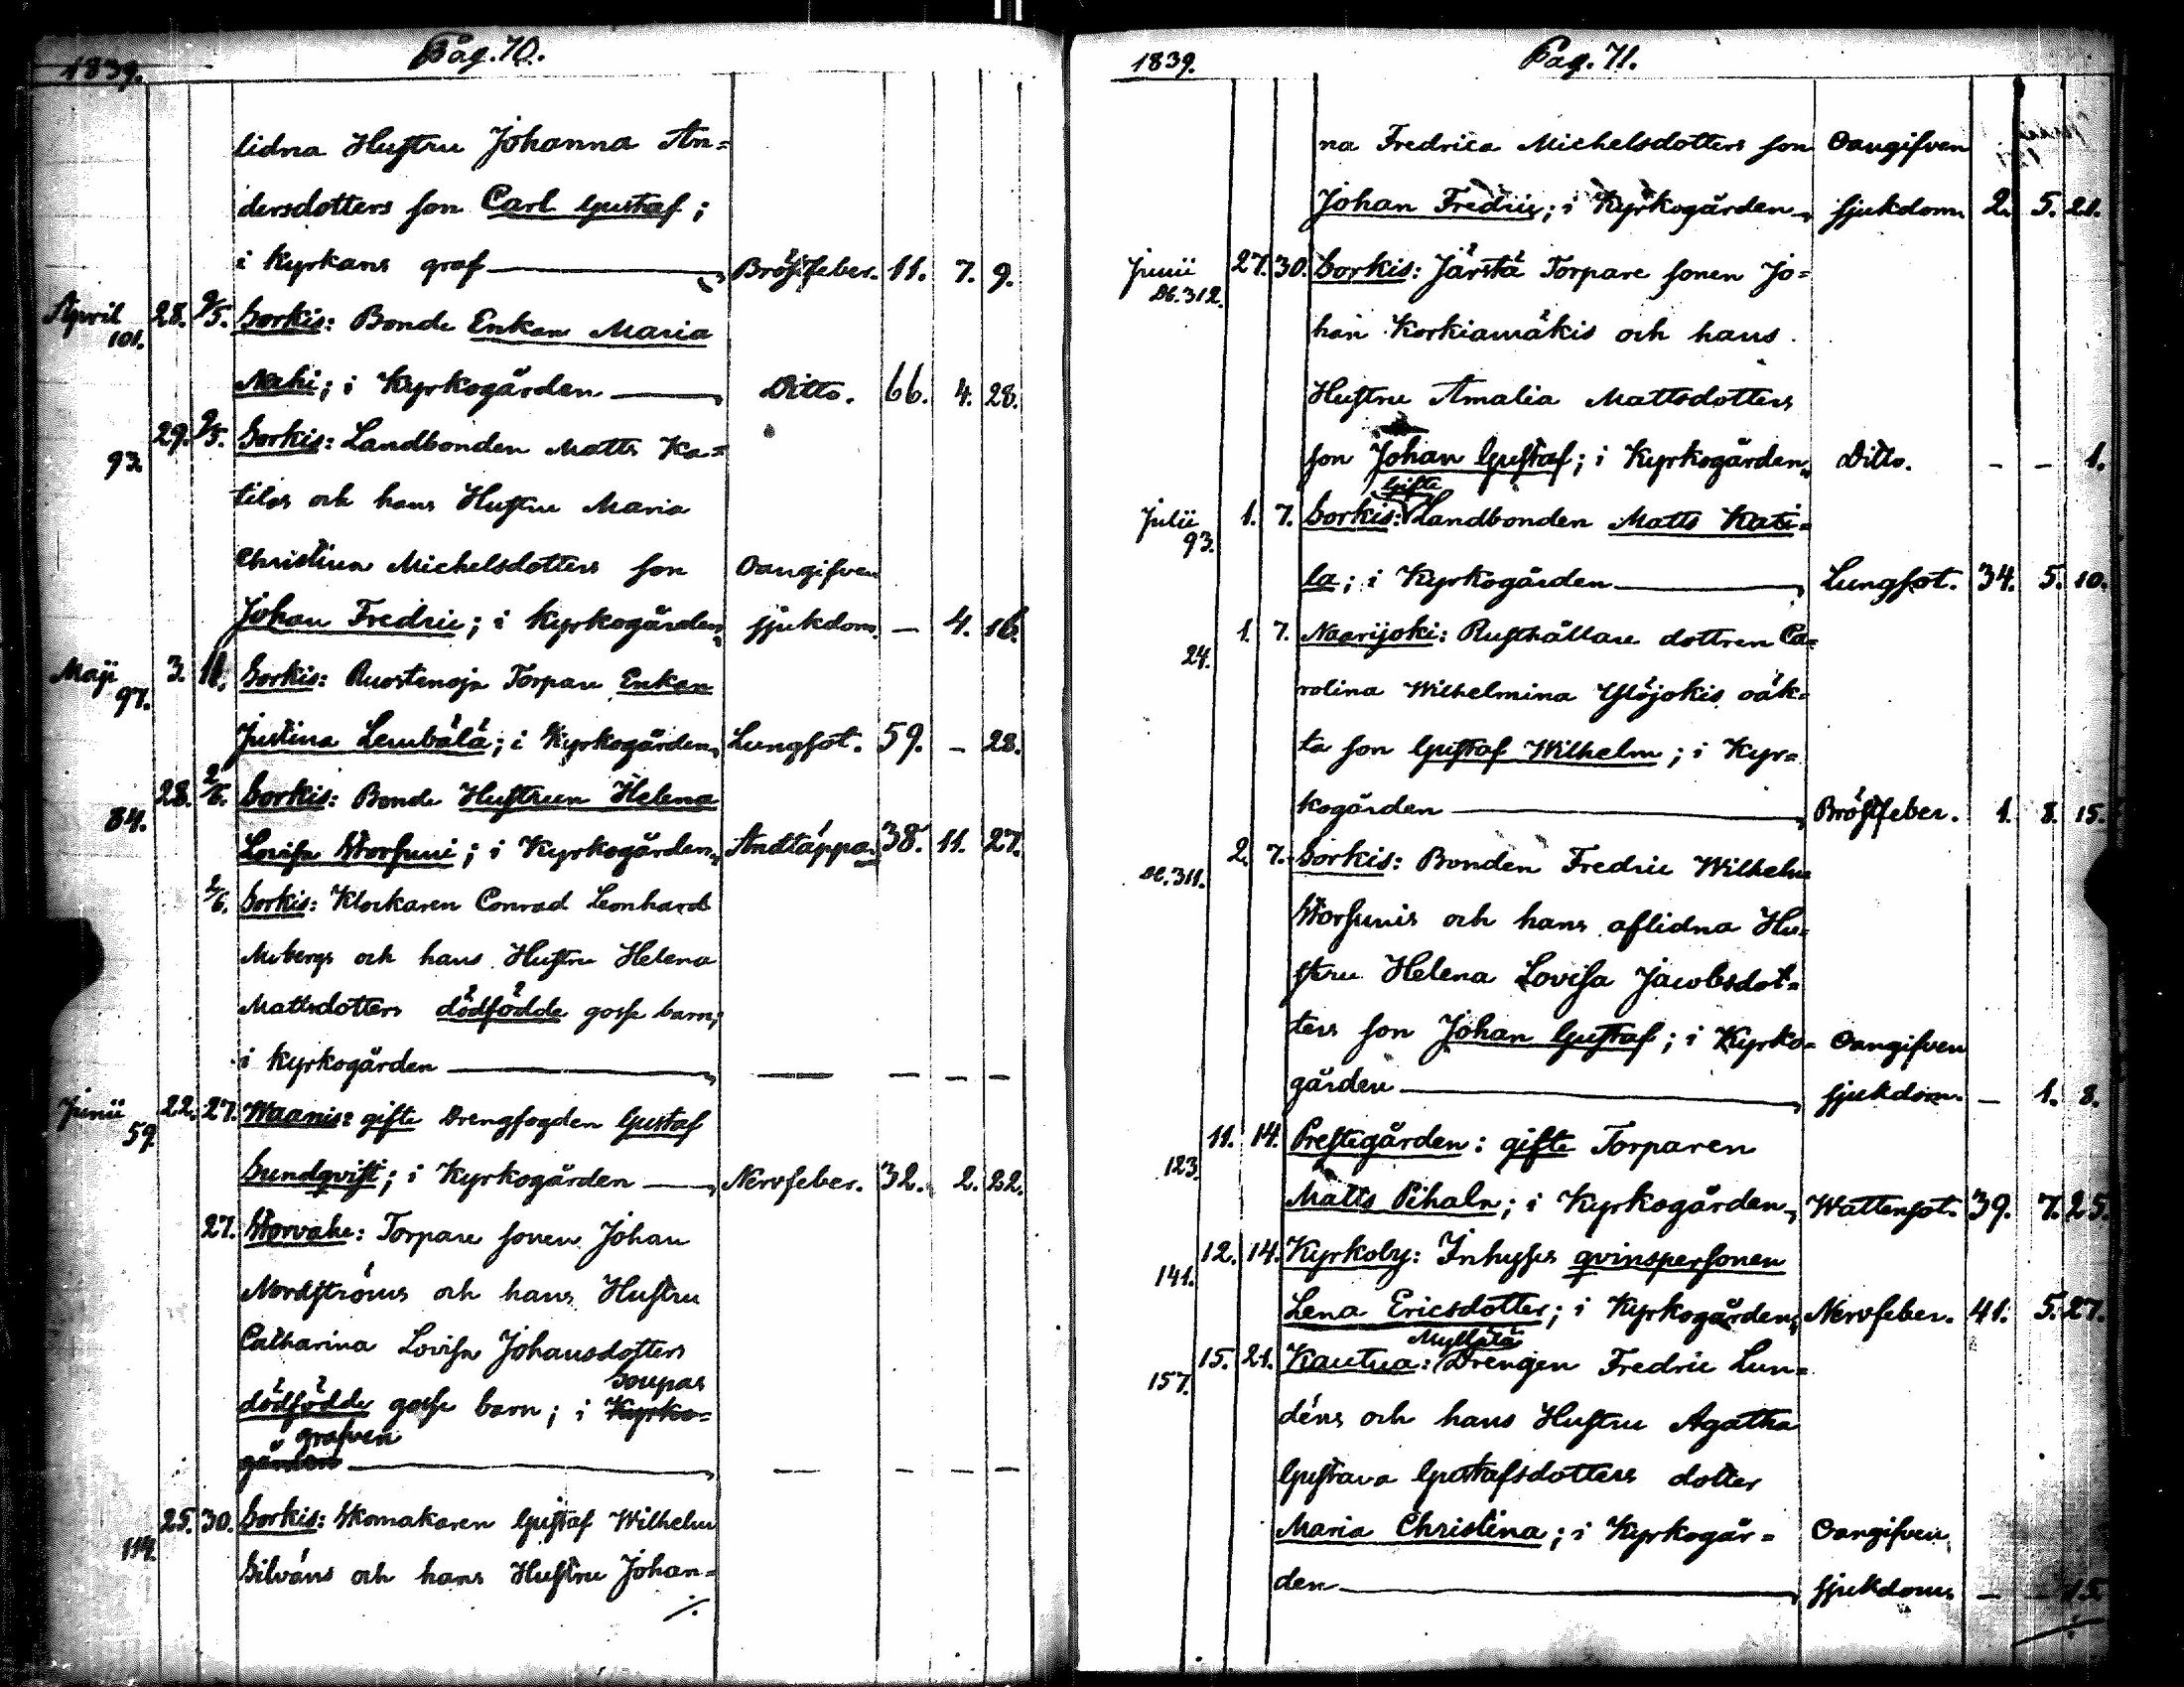 1839. Pag. 70.
lidna Hustru Johanna An=
dersdotters son Carl Gustaf;
i Kyrkans graf Bröstfeber. 11. 7. 9.
April 28. 9/5. Sorkis: Bonde Enkan Maria
101.
Nahi; i Kyrkogården Ditto. 66. 4. 28.
29. 9/5. Sorkis: Landbonden Matts Ka=
93.
tilas och hans Hustru Maria
Christina Michelsdotters son Oangifven
Johan Fredric; i Kyrkogården, sjukdom. — 4. 16.
Maji 3. 11. Sorkis: Ruostenoja Torpare Enkan
97.
Justina Lembälä; i Kyrkogården, Lungsot. 59. – 28.
28. 2/6. Sorkis: Bonde Hustrun Helena
84.
Lovisa Storsuni; i Kyrkogården, Andtäppa. 38. 11. 27.
2/6. Sorkis: Klockaren Conrad Leonhard
Mobergs och hans Hustru Helena
Mattsdotters dödfödde gosse barn;
i Kyrkogården — — – –
Junii 22. 27. Waanis: gifte Drengfogden Gustaf
59.
Sundqvist; i Kyrkogården Nervfeber. 32. 2. 22.
27. Korvake: Torpare sonen Johan
Nordströms och hans Hustru
Catharina Lovisa Johansdotters
Soupas
dödfödde gosse barn; i Kyrko=
grafven
gården — – – –
25. 30. Sorkis: Skomakaren Gustaf Wilhelm
114.
Silváns och hans Hustru Johan=
./.
1839. Pag. 71.
na Fredrica Michelsdotters son Oangifven
Johan Fredric; i Kyrkogården, sjukdom. 2. 5. 21.
Junii 27. 30. Sorkis: Järstä Torpare sonen Jo=
Db. 312.
han Korkiamäkis och hans
Hustru Amalia Mattsdotters
son Johan Gustaf; i Kyrkogården, Ditto. – – 1.
Gifte
Julii 1. 7. Sorkis: Landbonden Matts Kati=
93.
la; i Kyrkogården Lungsot. 34. 5. 10.
1. 7. Naarijoki: Rusthållare dottren Ca=
24.
rolina Wilhelmina Ylöjokis oäk=
ta son Gustaf Wilhelm; i Kyr=
kogården Bröstfeber. 1. 8. 15.
2. 7. Sorkis: Bonden Fredric Wilhelm
Db. 311.
Storsunis och hans aflidna Hu=
stru Helena Lovisa Jacobsdot=
ters son Johan Gustaf; i Kyrko= Oangifven
gården sjukdom. — 1. 8.
11. 14. Prestegården: gifte Torparen
123.
Matts Pihala; i Kyrkogården, Wattensot. 39. 7. 25.
12. 14. Kyrkoby: Inhyses qvinspersonen
141.
Lena Ericsdotter; i Kyrkogården, Nervfeber. 41. 5. 27.
Myllälä
15. 21. Kautua: Drengen Fredric Lun=
157.
déns och hans Hustru Agatha
Gustava Gustafsdotters dotter
Maria Christina; i Kyrkogår= Oangifven
den sjukdom. — – 15.
./.